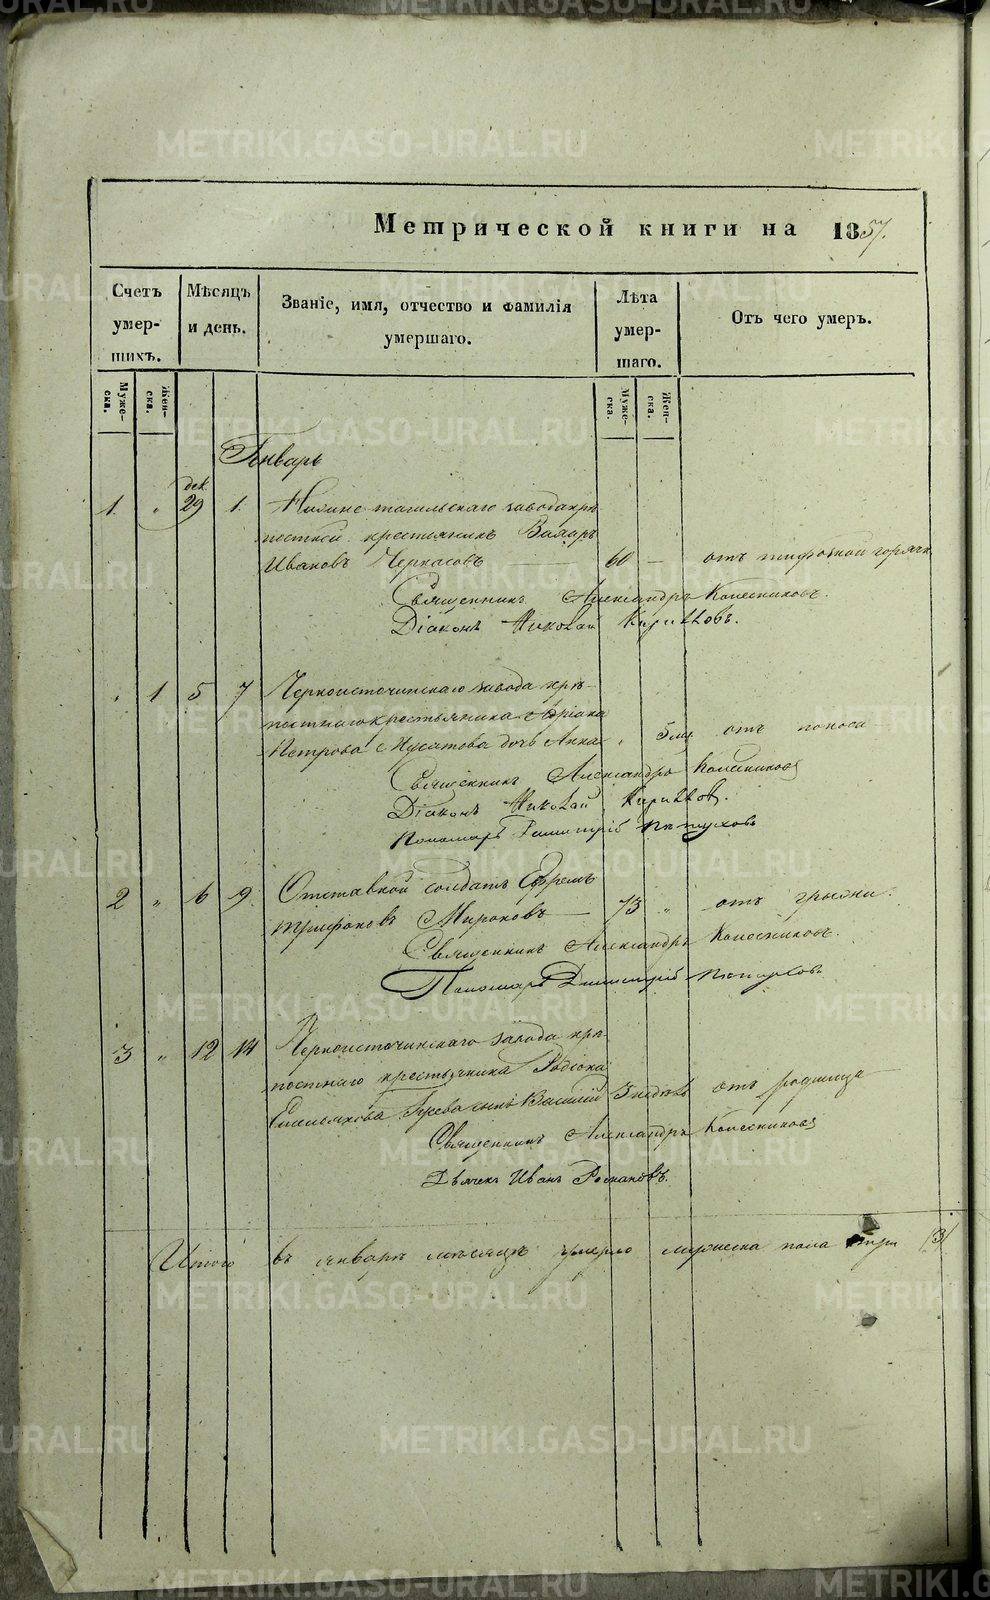 Метрической книги на 1857.
Счетъ умершихъ.
Мѣсяцъ и день.
Званіе, имя, отчество и фамилія умершаго.
Лѣта умершаго.
Отъ чего умеръ.
Мужеска.
Женска.
Мужеска.
Женска.
Январь
дек.
1. „ 29 1. Нижне тагильскаго завода крѣ
постной крестьянинъ
Ивановъ Черкасовъ — 60 — отъ тифозной горячк
Священникъ Александръ Колесниковъ.
Діаконъ Николай
„ 1 5 7 Черноисточинскаго завода крѣ-
постнаго крестьянина Адріана
Петрова Мусатова дочь Анна „ 5 мц отъ поноса
Священникъ Александръ Колесниковъ
Діаконъ Николай
Пономарь Димитрій Пѣтуховъ
2 „ 6 9. Отставной солдатъ Ефремъ
Трифоновъ Мироновъ — 73 „ отъ грыжи.
Священникъ Александръ Колесниковъ.
Пономарь Димитрій Пѣтуховъ
3 „ 12 14 Черноисточинскаго завода крѣ
постнаго крестьянина Родіона
сынъ Василій 3 недѣль отъ родимца
Священникъ Александръ Колесниковъ
Дьячекъ Иванъ Романовъ.
Итого въ январѣ мѣсяцѣ умерло мужеска пола три (3)
METRIKI.GASO-URAL.RU